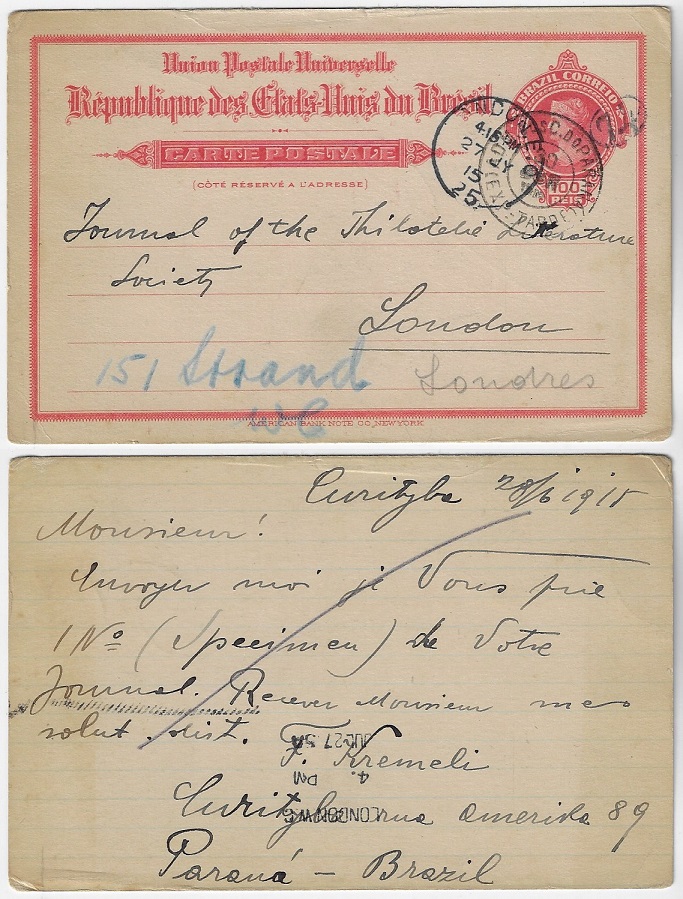 Union Postale Universelle
République des Etats-Unis du Brésil
CARTE POSTALE
(CÔTÉ RÉSERVÉ A L'ADRESSE)
BRAZIL CORREIO
100
REIS
LONDON
4.15 PM
27 JY
15
25
Journal of the Philatelic Literature
Society
London
151 Strand
Londres
WC
AMERICAN BANK NOTE CO. NEW YORK
Curityba 28/6 1915
Monsieur!
Envoyer moi je Vous prie
1 No (Specimen) de Votre
Journal. Recever Monsieur mes
salut. dist.
F. Kremeli
JUL 27 15
4. PM
LONDON W.C
Curityba rua America 89
Paraná - Brazil